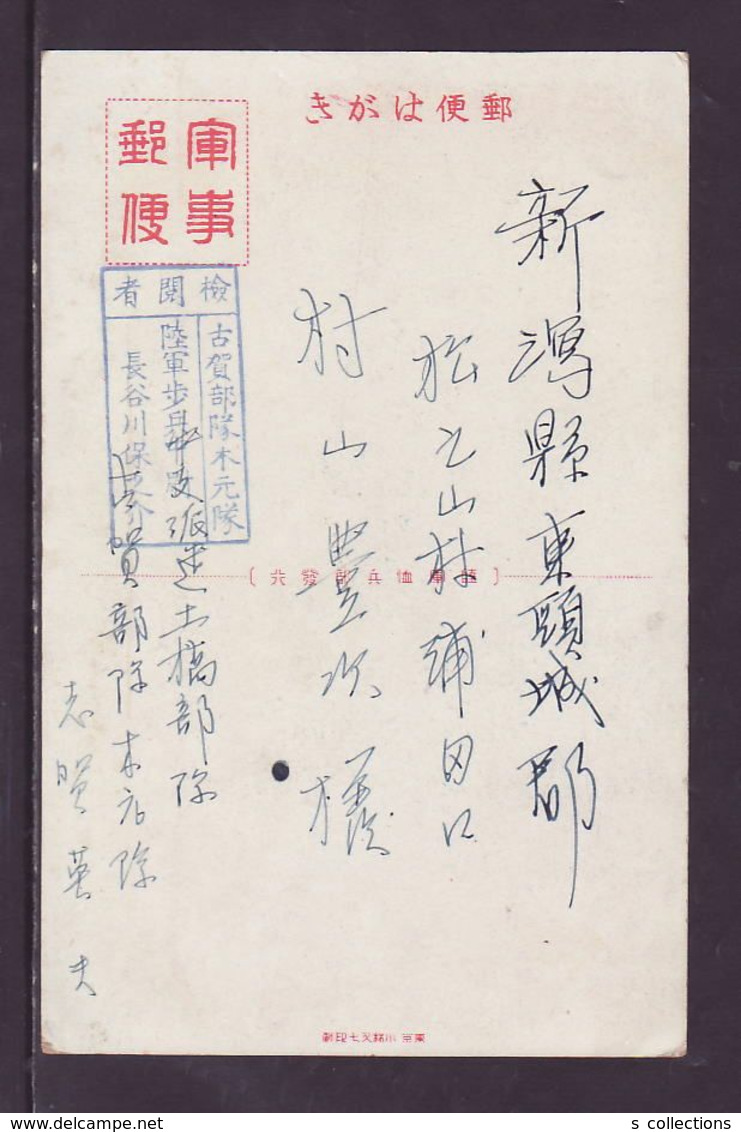 郵便はがき
軍事
郵便
新潟縣東頸城郡
松之山村浦田口
村山豊次様
檢閲者
古賀部隊木元隊
陸軍歩兵中尉
長谷川保
派遣土橋部隊
古賀部隊木元隊
志賀英夫
〔陸軍恤兵部發行〕
東京 小林又七印刷
s collections